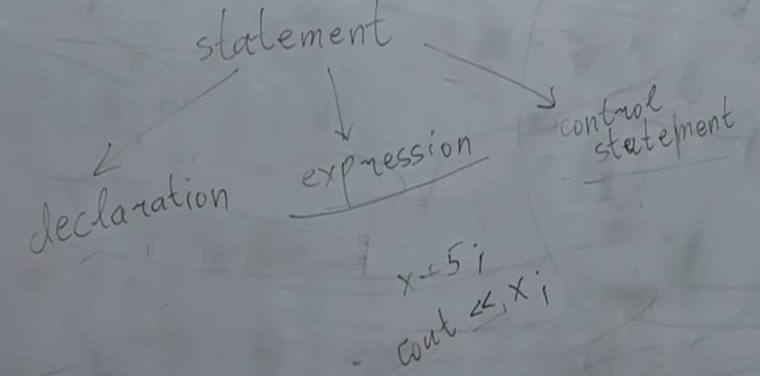 statement
declaration
expression
control
statement
x=5;
cout << x;